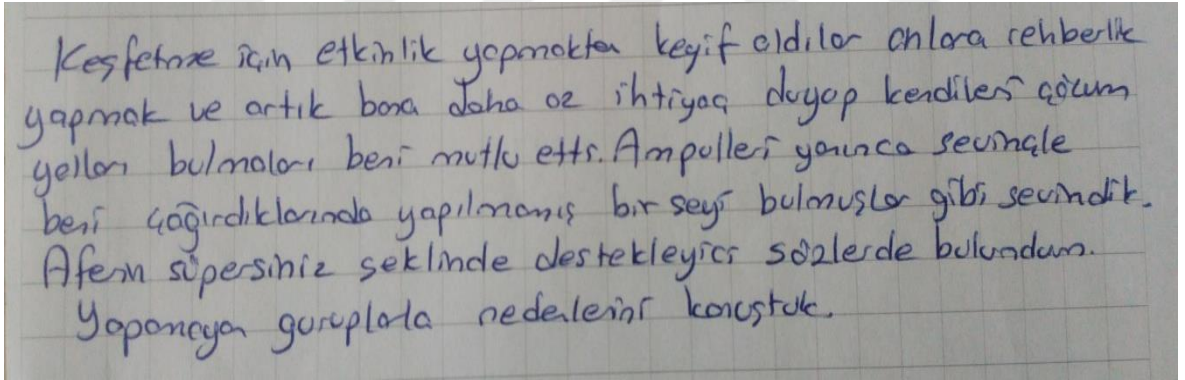 Keşfetme için etkinlik yapmaktan keyif aldılar onlara rehberlik
yapmak ve artık bana daha az ihtiyaç duyap kendileri çözüm
yolları bulmaları beni mutlu etti. Ampulleri yanınca sevinçle
beni çağırdıklarında yapılmamış bir şeyi bulmuşlar gibi sevindik.
Aferin süpersiniz şeklinde destekleyici sözlerde bulundum.
Yapamayan guruplarla nedenlerini konuştuk.